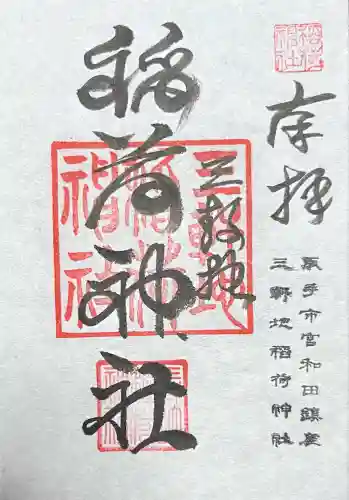 奉拝
取手市宮和田鎮座
三軒地稲荷神社
三軒地
稲荷神社